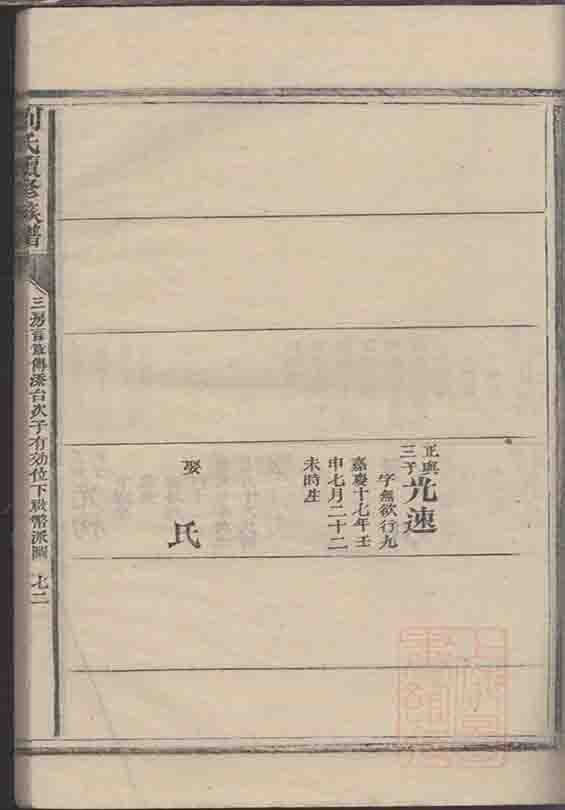 正與
三子
光速
字無欲行九
嘉慶十七年壬
申七月二十二
未時生
娶 氏
劉氏續修族譜
三房言宣傳添台次子有効位下敬幣派圖 七二